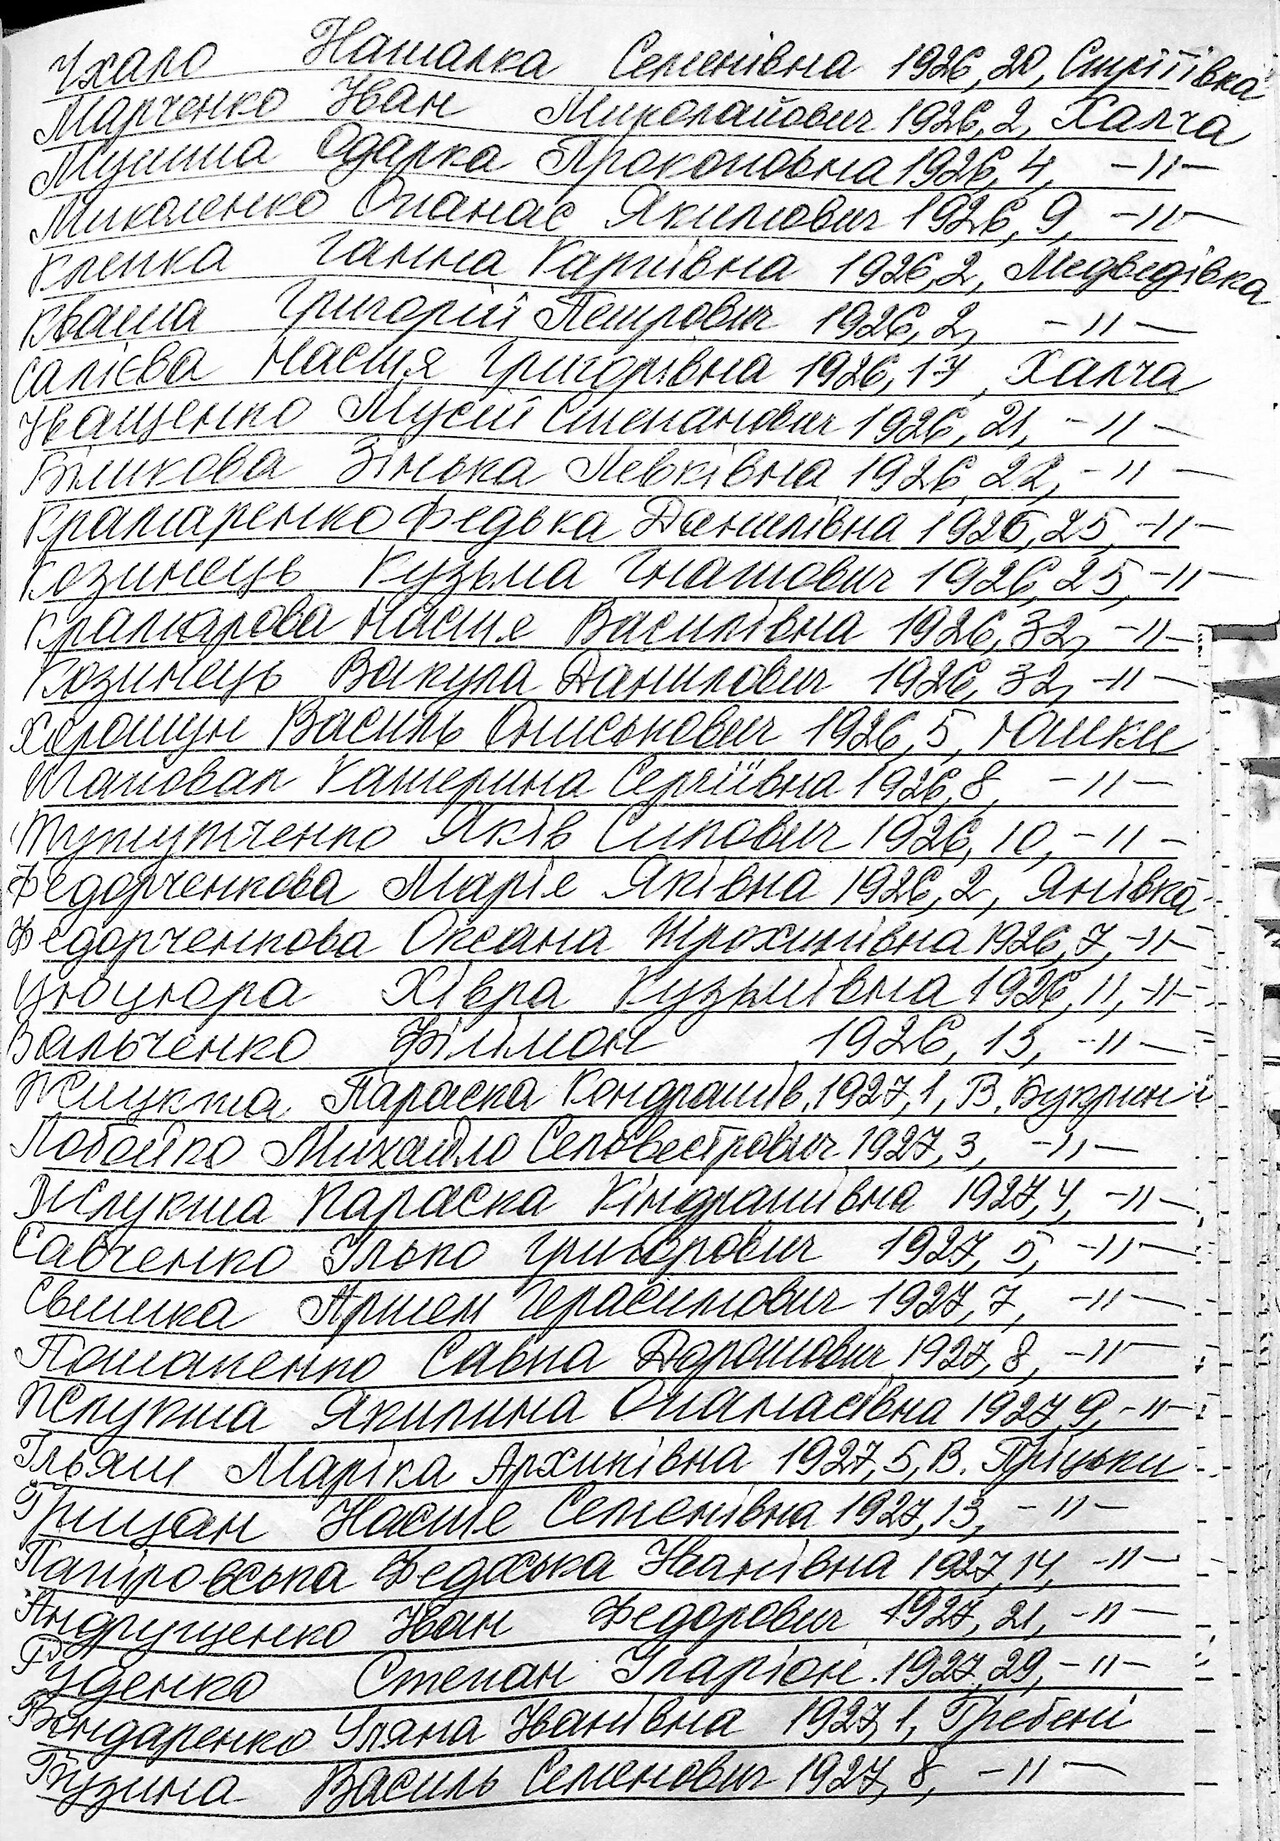 Ухало Наталка Семенівна 1926, 20, Стритівка
Марченко Іван Миколайович 1926, 2, Халча
Одарка Прокопівна 1926, 4, -//-
Миколенко Опанас Якимович 1926, 9, -//-
Клепка Ганна Карпівна 1926, 2, Медведівка
Кваша Григорій Петрович 1926, 2, -//-
Салієва Настя Григорівна 1926, 17, Халча
Іващенко Мусій Степанович 1926, 21, -//-
Біликова Зінька Левківна 1926, 22, -//-
Крамаренко Федька Данилівна 1926, 25, -//-
Козинець Кузьма Гнатович 1926, 25, -//-
Крамарова Настя Василівна 1926, 32, -//-
Козинець Вакула Данилович 1926, 32, -//-
Василь Онискович 1926, 5, Юшки
Шаповал Катерина Сергіївна 1926, 8, -//-
Яків Силович 1926, 10, -//-
Федорченкова Марія Яківна 1926, 2, Янівка
Федорченкова Оксана Трохимівна 1926, 7, -//-
Цюцюра Хівра Кузьмівна 1926, 11, -//-
Вальченко Філімон 1926, 13, -//-
Жлукта Параска Кондратів. 1927, 1, В. Букрин
Лобойко Михайло Селовестрович 1927, 3, -//-
Жлукта Параска Кіндратівна 1927, 4, -//-
Савченко Ілько Григорович 1927, 5, -//-
Свитка Артем Герасимович 1927, 7, -//-
Потапенко Савка Дорошович 1927, 8, -//-
Жлукта Якилина Опанасівна 1927, 9, -//-
Ільяш Маріка Архипівна 1927, 5, В. Пріцьки
Грицан Настя Семенівна 1927, 13, -//-
Папіровська Федоська Іванівна 1927, 14, -//-
Андрущенко Іван Федорович 1927, 21, -//-
Руденко Степан Іларіон. 1927, 29, -//-
Бондаренко Уляна Іванівна 1927, 1, Гребені
Бузина Василь Семенович 1927, 8, -//-